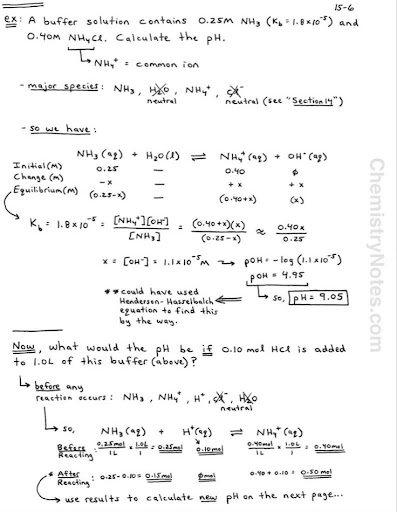 15-6
ex: A buffer solution contains 0.25M NH₃ (K_b = 1.8×10⁻⁵) and
0.40M NH₄Cl. Calculate the pH.
↳ NH₄⁺ = common ion
- major species: NH₃, H₂O, NH₄⁺, Cl⁻
neutral neutral (see "Section 14")
- so we have:
NH₃(aq) + H₂O(l) ⇌ NH₄⁺(aq) + OH⁻(aq)
Initial(M) 0.25 — 0.40 ϕ
Change(M) -x — +x +x
Equilibrium(M) (0.25-x) — (0.40+x) (x)
K_b = 1.8×10⁻⁵ = [NH₄⁺][OH⁻]/[NH₃] = (0.40+x)(x)/(0.25-x) ≈ 0.40x/0.25
x = [OH⁻] = 1.1×10⁻⁵ M → pOH = -log(1.1×10⁻⁵)
pOH = 4.95
↳ so, pH = 9.05
** could have used
Henderson-Hasselbalch
equation to find this
by the way.
Now, what would the pH be if 0.10 mol HCl is added
to 1.0L of this buffer (above)?
↳ before any
reaction occurs: NH₃, NH₄⁺, H⁺, Cl⁻, H₂O
neutral
↳ so, NH₃(aq) + H⁺(aq) ⇌ NH₄⁺(aq)
Before Reacting: 0.25mol/1L × 1.0L/1 = 0.25mol 0.10mol 0.40mol/1L × 1.0L/1 = 0.40mol
* After Reacting: 0.25-0.10 = 0.15mol ϕmol 0.40+0.10 = 0.50mol
↳ use results to calculate new pH on the next page...
ChemistryNotes.com